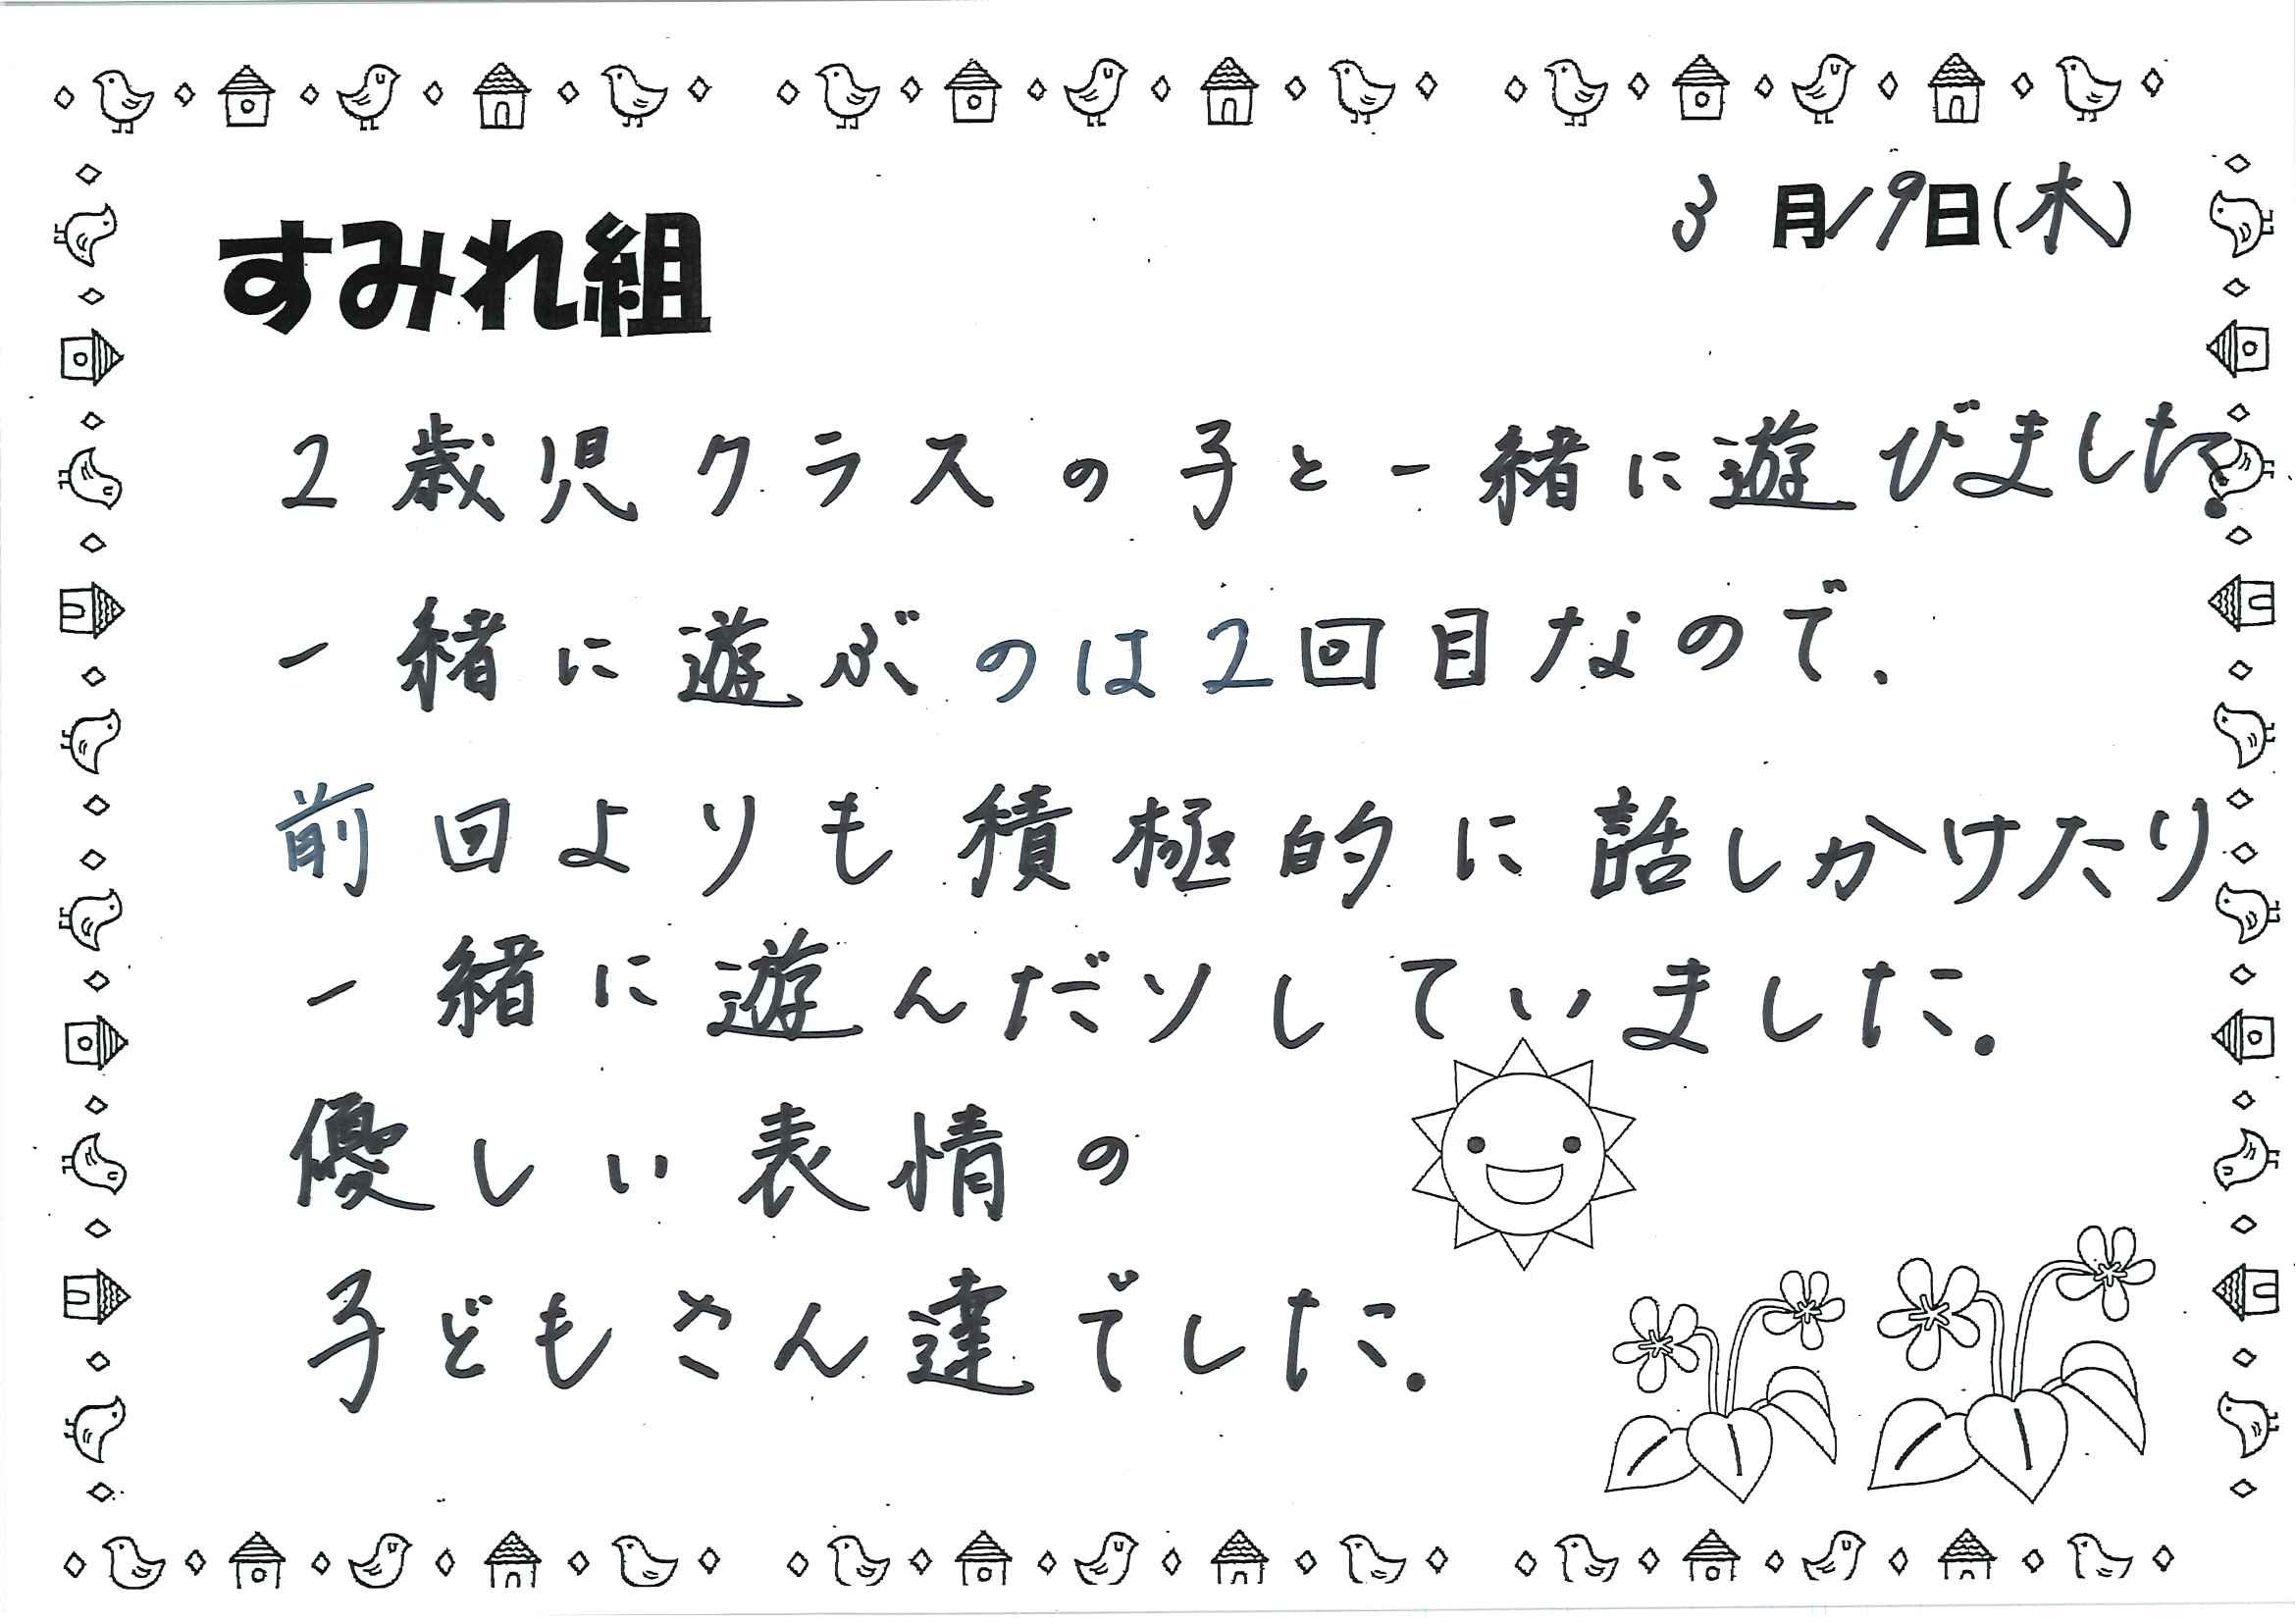 3月19日(水)
すみれ組
2歳児クラスの子と一緒に遊びました。
一緒に遊ぶのは2回目なので、
前回よりも積極的に話しかけたり
一緒に遊んだりしていました。
優しい表情の
子どもさん達でした。